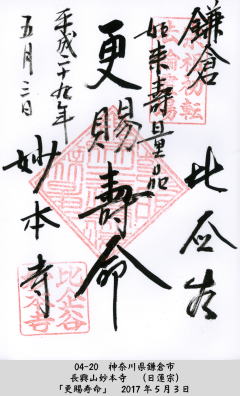 鎌倉
比企谷
如来壽量品
更賜壽命
平成二十九年
五月三日
妙本寺
04-20 神奈川県鎌倉市
長興山妙本寺 (日蓮宗)
「更賜寿命」 2017年5月3日